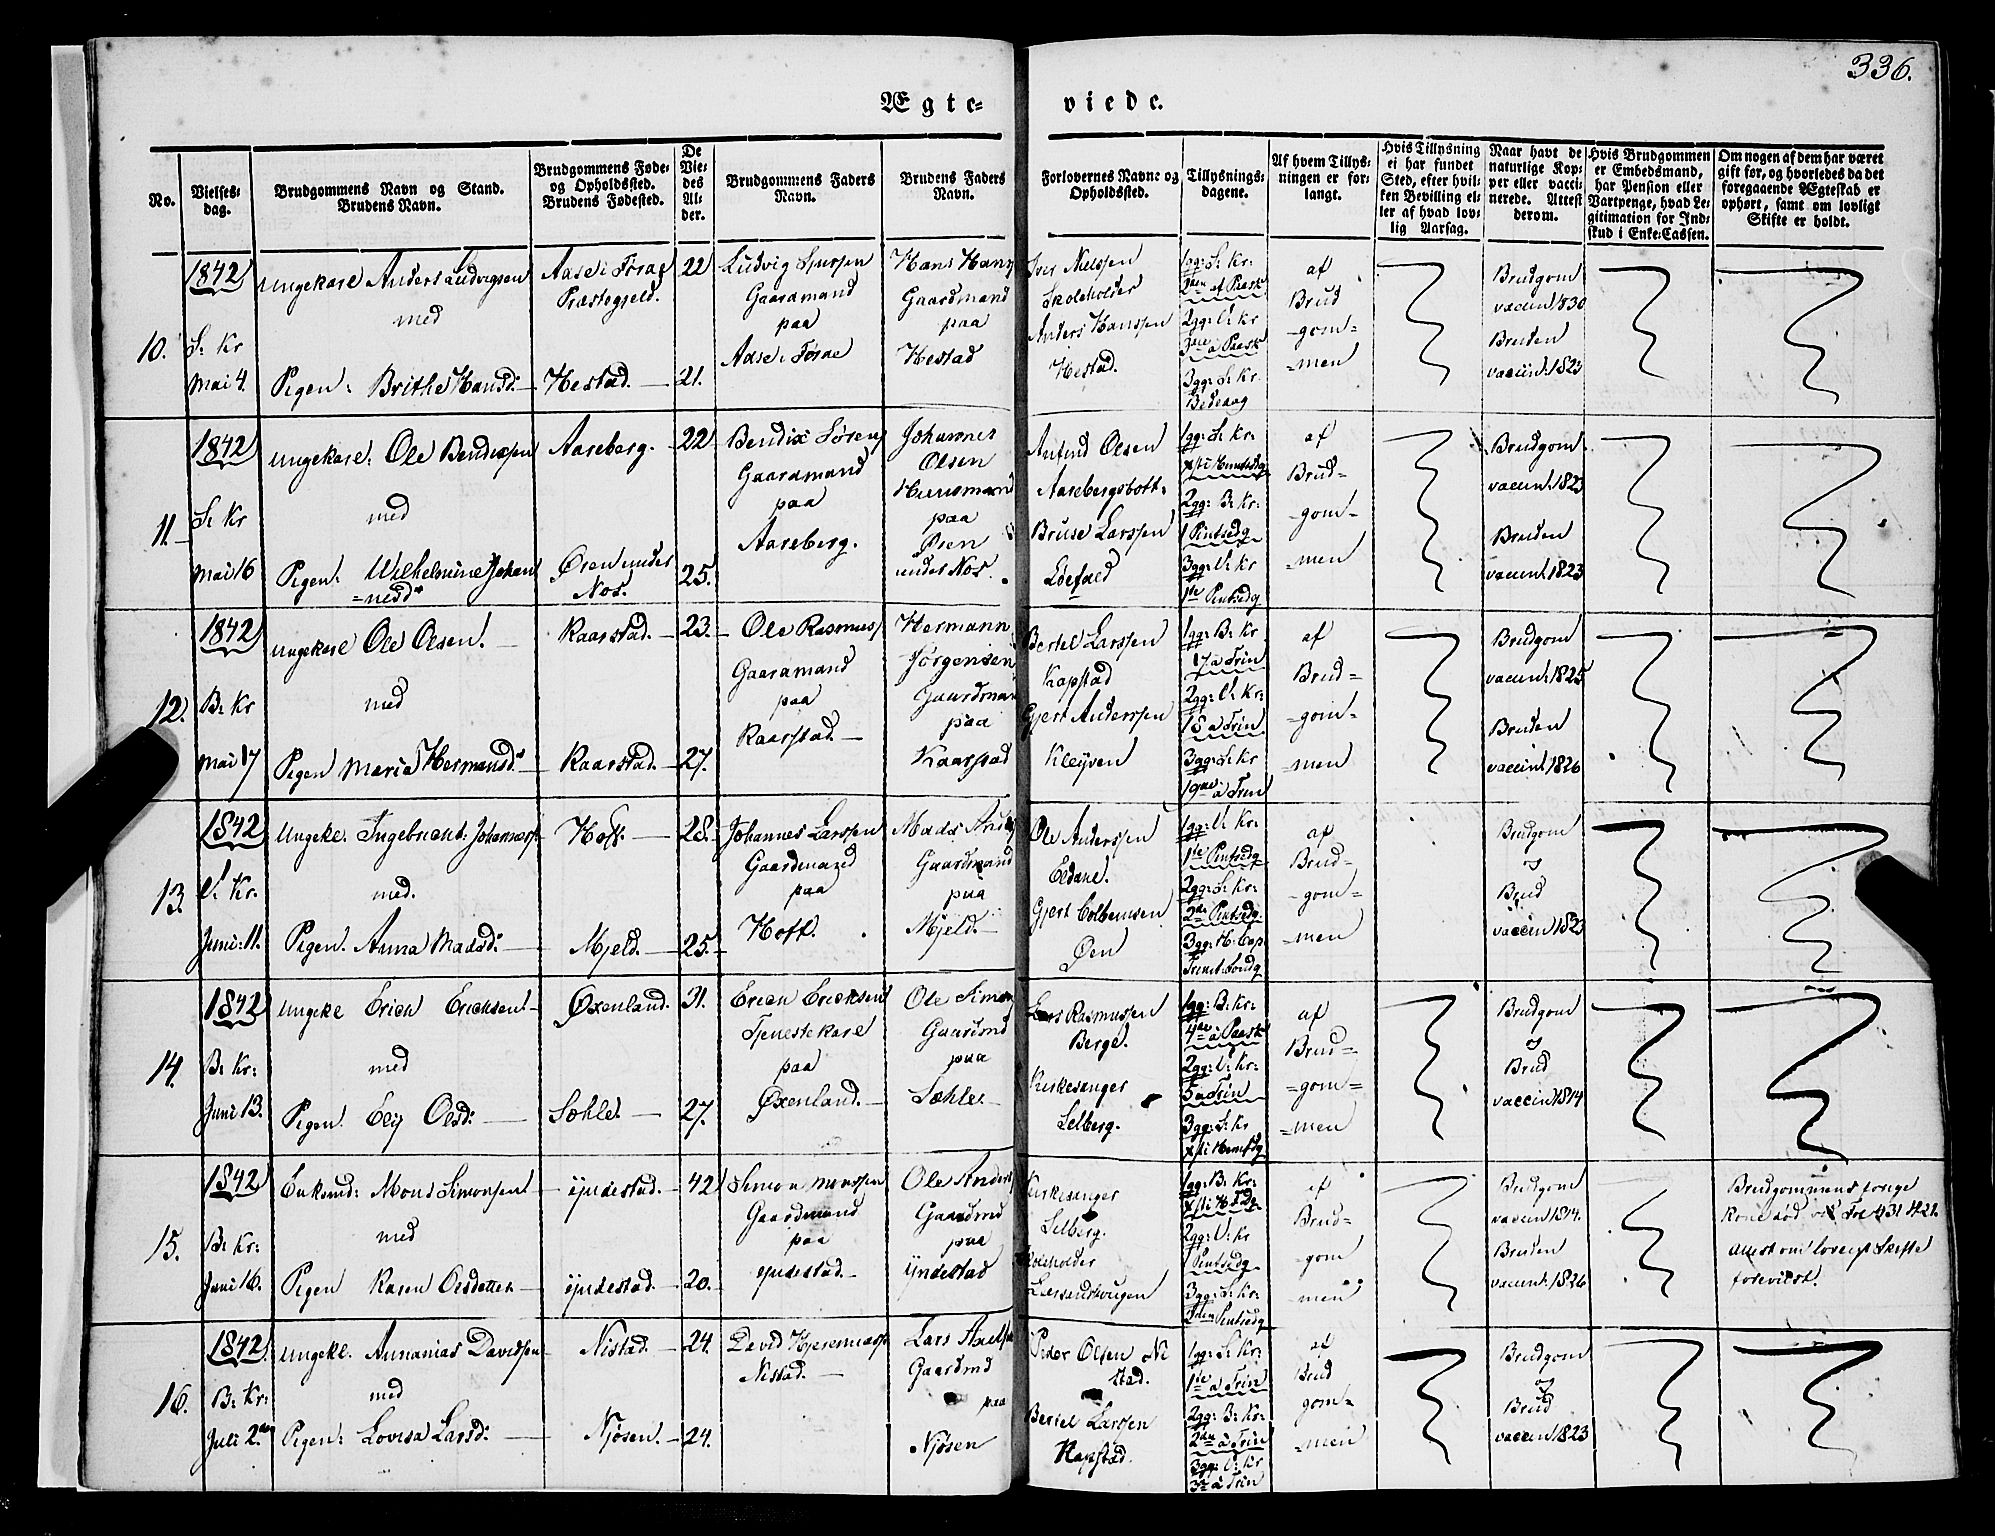 336.
Ægte-
viede.
No.
Vielses-
dag.
Brudgommens Navn og Stand.
Brudens Navn.
Brudgommens Føde-
og Opholdssted.
Brudens Fødested.
De
Vie-
des
Al-
der.
Brudgommens Faders
Navn.
Brudens Faders
Navn.
Forlovernes Navne og
Opholdssted.
Tillysnings-
dagene.
Af hvem Tillys-
ningen er for-
langt.
Hvis Tillysning
ei har fundet
Sted, efter hvil-
ken Bevilling el-
ler af hvad lov-
lig Aarsag.
Naar havt de
naturlige Kop-
per eller vacci-
nerede. Attest
derom.
Hvis Brudgommen
er Embedsmand,
har Pension eller
Vartpenge, hvad Le-
gitimation for Ind-
skud i Enke-Cassen.
Om nogen af dem har været
gift før, og hvorledes da det
foregaaende Ægteskab er
ophørt, samt om lovligt
Skifte er holdt.
10.
1842
S: Kr
Mai 4.
Ungekarl Anders Ludvigsen
med
Pigen: Brithe Hansd:
Aase i Førde
Præstegjeld.
Hestad.
22
21.
Ludvig
Gaardmand
paa
Aase i Førde
Hans Hans
Gaardmand
paa
Hestad
Iver Nielssen
Skoleholder
Anders Hanssen
Hestad.
1gg: S: Kr:
2den af Paask
2gg: V: Kr
3die a Paask
3gg: S: Kr.
Bededag
af
Brud
-gom-
-men
Brudgom
vaccin: 1830
Bruden
vaccin: 1823
11.
1842
S: Kr
Mai 16
Ungekarl: Ole Bendixsen
med
Pigen: Wilhelmine Johan
=nesd
Aaseberg.
Øren under
Nos.
22
25.
Bendix Søren
Gaardmand
paa
Aaseberg.
Johannes
Olsen
Huusmand
paa
Øren
under Nos.
Anfind Olsen
Aasebergsbott:
Bruse Larssen
1gg: S: Kr:
2gg: B: Kr:
1 Pintsedg
3gg: V: Kr
1ste Pintsedg
af
Brud-
-gom-
-men
Brudgom
vaccin: 1823
Bruden
vaccin: 1823
12.
1842
B: Kr
Mai 17
Ungekarl Ole Olsen.
med
Pigen Maria Hermansd:
Kaarstad.
Kaarstad.
23.
27.
Ole Rasmuss
Gaardmand
paa
Kaarstad.
Hermann
Jørgensen
Gaardman
paa
Kaarstad
Bertel Larssen
Kapstad
Gjert Anderssen
Kleyven
1gg: B: Kr
17 a Trin
2gg: V: Kr:
18 a Trin
3gg: S: Kr
19de a Trin
af
Brud-
-gom-
-men
Brudgom
vaccin: 1825
Bruden
vaccin: 1826
13.
1842
V: Kr:
Juni: 11.
Ungek: Ingebrient: Johannes
med.
Pigen. Anna Madsd:
Hoff.
Mjeld.
28.
25.
Johannes Larssen
Gaardmand
paa
Hoff.
Mads And
Gaardmand
paa
Mjeld.
Ole Anderssen
Eldane.
Gjert Colbensen
Øen
1gg: V: Kr.
1ste Pintsedg
2gg: S: Kr:
2den Pintsedg.
3gg: H: Cap
Trinit: Sondg
af
Brud-
-gom=
-men
Brudgom
og
Brud
vaccin 1823
14.
1842
B: Kr:
Juni 13.
Ungek: Erich Ericksen
med
Pigen. Eli Olsd:
Øxenland.
Sæhle.
31.
27.
Erich Ericksen
Tjenestekarl
paa
Øxenland.
Ole Simon
Gaardmd
paa
Sæhle.
Lars Rasmussen
Berge.
Kirkesanger
Selberg.
1gg: B: Kr:
4de a Paask
2gg: V: Kr:
5 a Trin
3gg: S: Kr
af
Brud-
=gom=
=men
Brudgom
og
Brud
vaccin 1814
15.
1842
B: Kr:
Juni 16.
Enkemd: Mons Simonsen
med
Pigen Karen Olsdatter
Yndestad.
Yndestad.
42
20.
Simon Monssen
Gaardmand
paa
Yndestad.
Ole Anders
Gaardmd
paa
Yndestad
Kirkesanger
Selberg.
1gg: B: Kr:
2gg: V: Kr
1 Pintsedg
3gg: S: Kr:
2den Pintsedg
af
Brud-
-gom
-men
Brudgom
vaccin 1814.
Bruden
vaccin: 1826
Brudgommens forige
Kone død
attest om lovligt Skifte
foreviist.
16.
1842.
B: Kr:
Juli 2.
Ungek. Annanias Davidsen
med
Pigen: Lovisa Larsd:
Nistad.
Njøsen.
24.
24.
David
Nistad.
Lars Axels
Gaardmd
paa
Njøsen
Peder Olsen Ni
stad.
Bertel Larssen
Kapstad.
1gg: S: Kr:
1ste a Trin
2gg: B: Kr:
2den a Trin
3gg: V: Kr
3die a Trin
af
Brud
gom-
-men
Brudgom
og
Brud
vaccin 1823